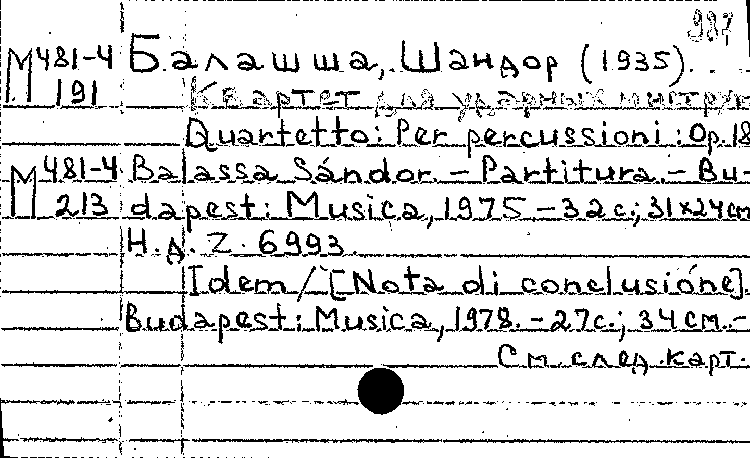 987
М481-4 Балашша, Шандор (1935).
191 Квартет для ударных инструм
Quartetto: Per percussioni: Op.18
М481-4 Balassa Sándor. - Partitura. - Bu-
213 dapest: Musica, 1975 - 32 с.; 31x24см
Н.д. Z. 6993.
Idem / [Nota di conclusióne].
Budapest: Musica, 1978. - 27с.; 34 см. -
См. след. карт.